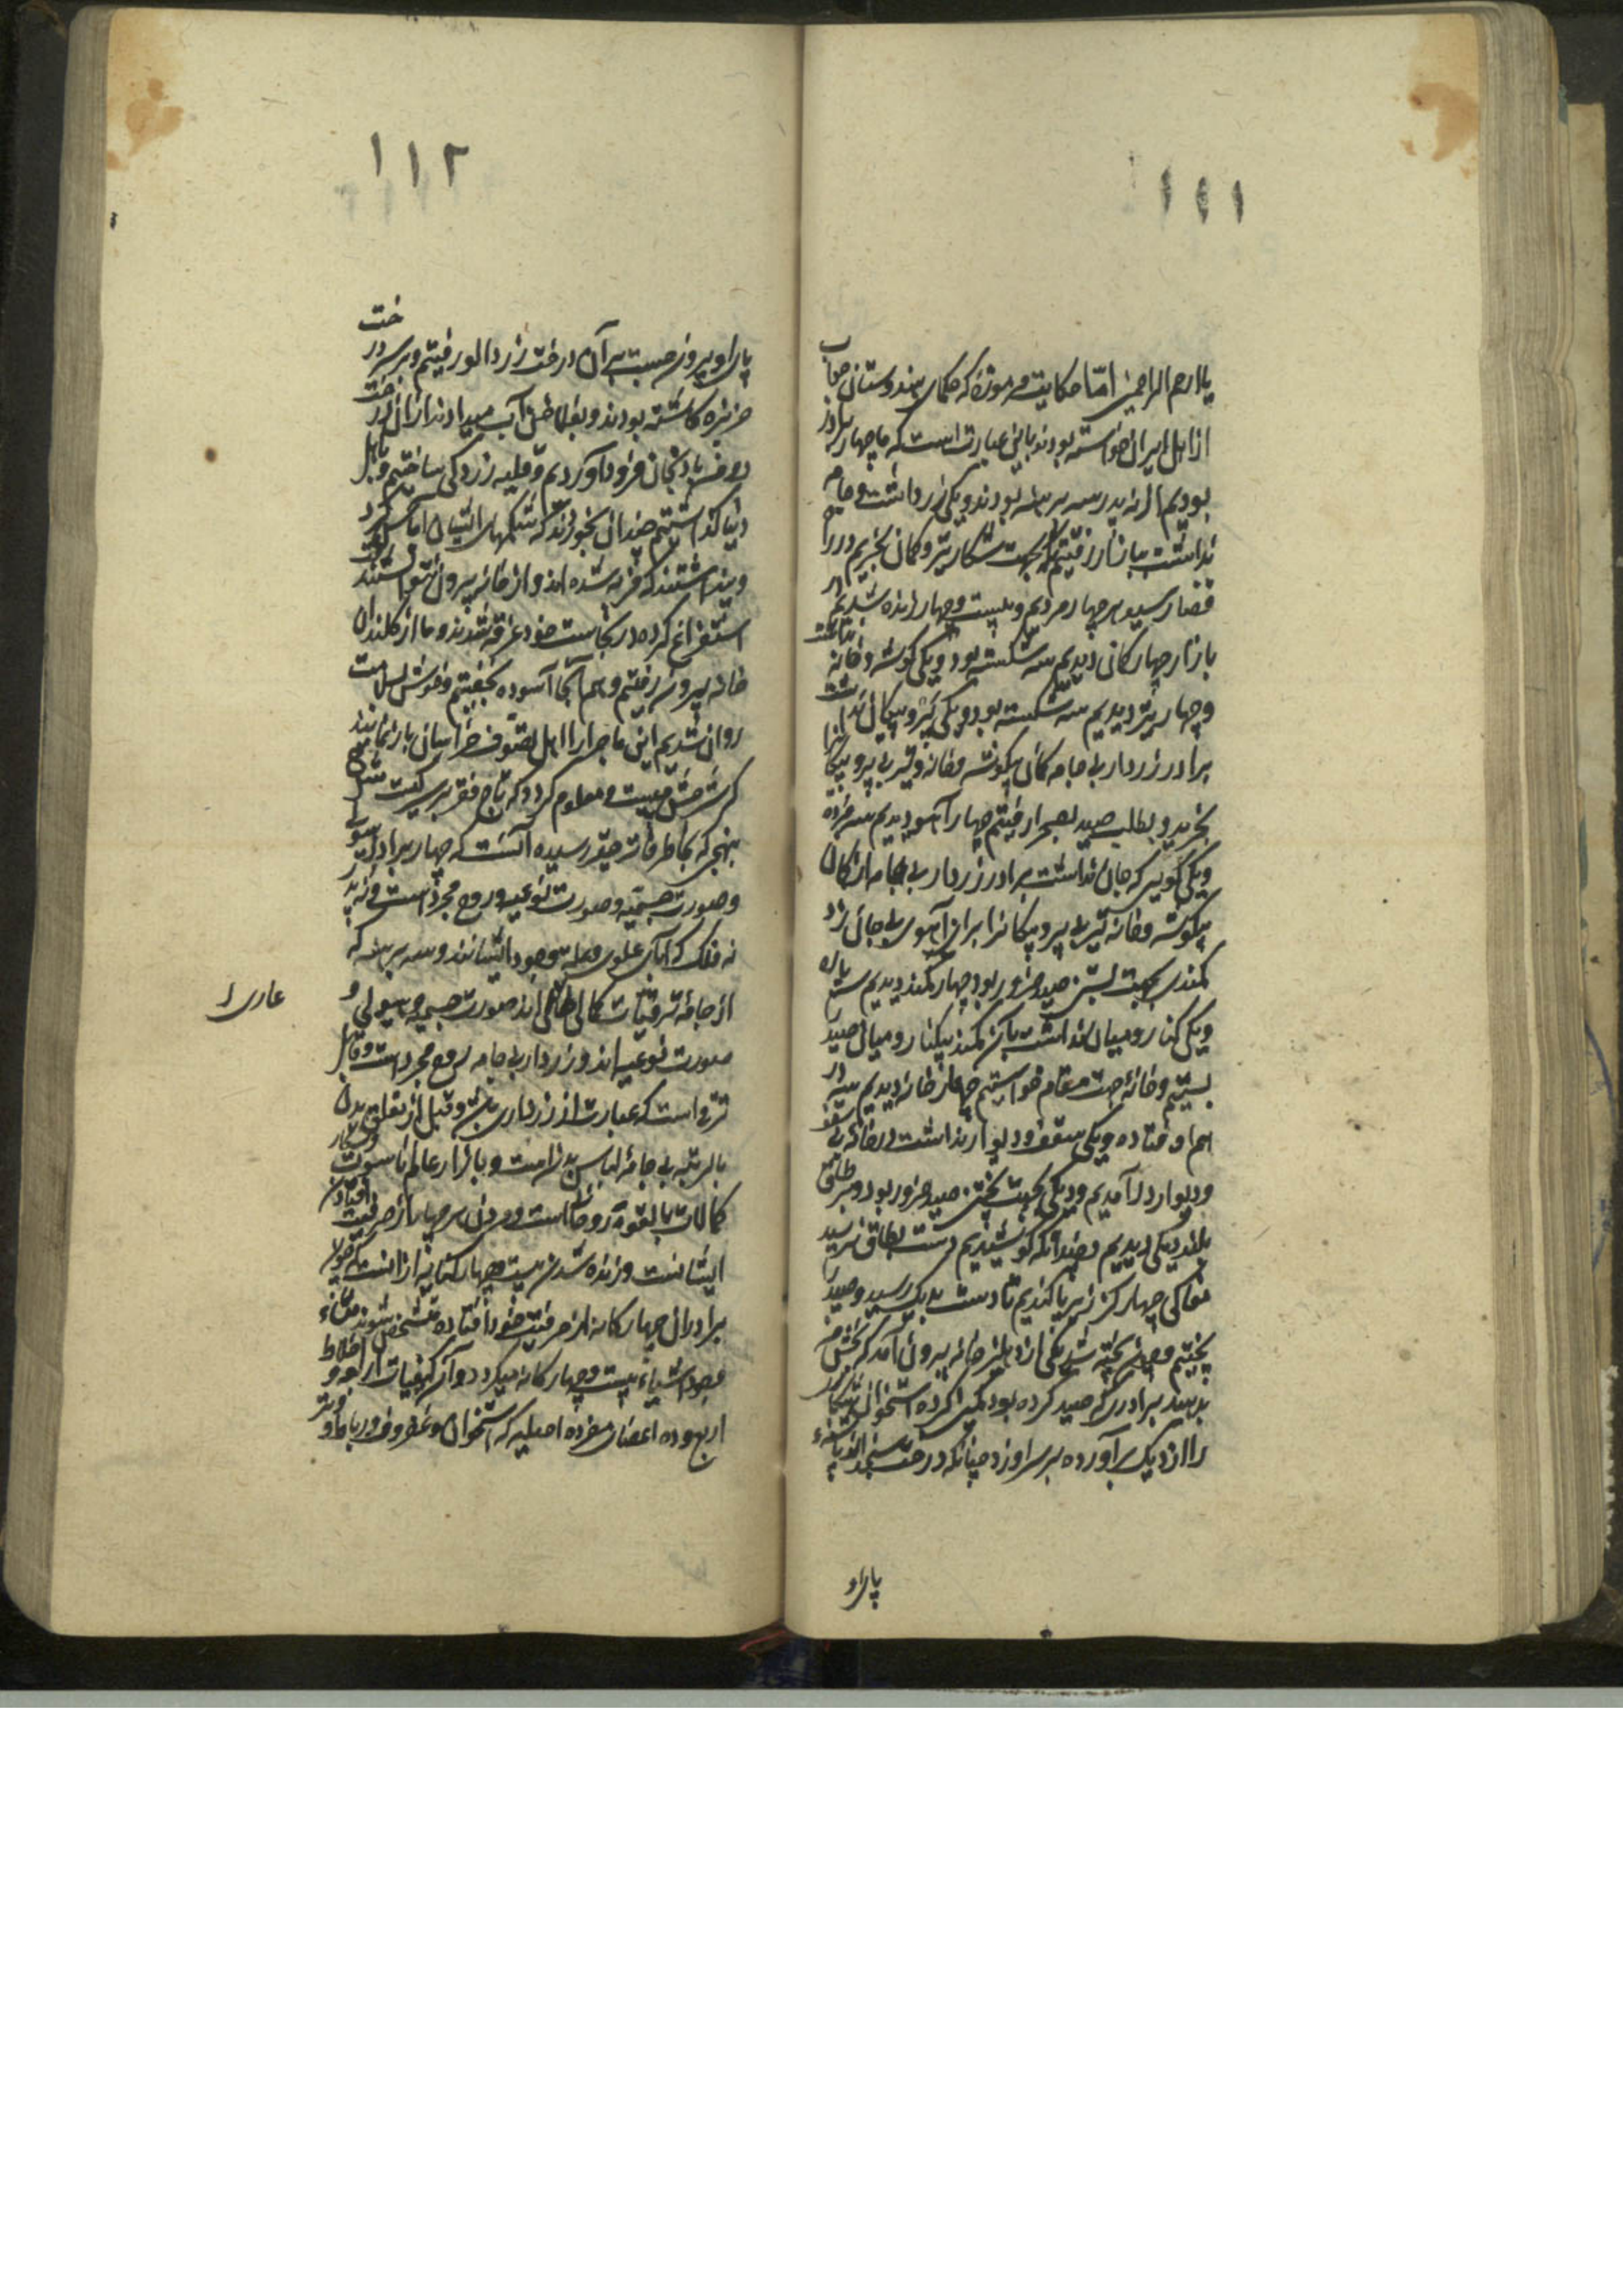 ۱۱۱
یا ارحم الراحمین اما حکایت مرموزه که حکمای هندوستان جواب
از اهل ایران خواسته بودند باین عبارت است که ما چهار برادر
بودیم از نه پدر سه برهنه بودند و یکی زر داشت و جامه
نداشت ببازار رفتیم که بجهت شکار تیر و کمان بخریم در راه
قضا رسید هر چهار مردیم و بیست و چهار زنده شدیم در
بازار چهار کمان دیدیم سه شکسته بود و یکی گوشه و خانه نداشت
و چهار تیر دیدیم سه شکسته بود و یکی پر و پیکان نداشت
برادر زردار بی جامه کمان بیگوشه و خانه و تیر بی پر و پیکانرا
بخرید و بطلب صید بصحرا رفتیم چهار آهو دیدیم سه مرده
و یکی که جان نداشت برادر زردار بی جامه از کمان
بیگوشه و خانه تیر بی پر و پیکانرا بر آن آهوی بی جان زد
کمندی بجهت بستن صید ضرور بود چهار کمند دیدیم سه پاره
و یکی کنار و میان نداشت بآن کمند بیکنار و میان صید
بستیم و خانه جهت مقام خواستیم چهار خانه دیدیم سه در
هم اوفتاده و یکی سقف و دیوار نداشت در خانه بی سقف
و دیوار درآمدیم و دیگی بجهت پختن صید ضرور بود و بر طاقی
بلند دیگی دیدیم و چندانکه کوشیدیم دست بطاق نرسید
مغاکی چهار گز زیر پا کندیم تا دست بدیگ رسید و صید
پختیم و چون پخته شد یکی از دهلیز خانه بیرون آمد که بخش من
بدهید برادری که صید کرده بود کمین کرده استخوان
را از دیگ برآورده بر سر او زد چنانکه درخت سنجد از پاشنه
پای او
۱۱۲
پای او بیرون جست بر آن درخت زردالو رفتیم و بر سر درخت
خربزه کاشته بودند و بفلاخن آب میدادند از آن درخت
بادنجان فرود آوردیم و قلیه زردکی ساختیم و باهل
دنیا گذاشتیم چندان بخوردند که شکمهای ایشان آماس کرد
و پنداشتند که فربه شده‌اند و از خانه بیرون نتوانستند رفت
استفراغ کرده در نجاست خود غرقه شدند و ما از کلیدان
خانه بیرون رفتیم و هم آنجا آسوده بخفتیم و خوش بسلامت
روان شدیم این ماجرا را اهل تصوف خراسان باز نمایند
که شرحش چیست و معلوم گردد که تاج فقر بر سر کیست
بنهجی که بخاطر فاتر حقیر رسیده آنست که چهار برادر هیولی
و صورت جسمیه و صورت نوعیه و روح مجرد است و نه پدر
نه فلک که آبای علوی و علت وجود ایشانند و سه برهنه که
از جامه ترقیات کمالی عاری اند صورت جسمیه و هیولی و
عاری
صورت نوعیه اند و زردار بی جامه روح مجرد است و قابل
ترقی است که عبارت از زرداری باشد و قبل از تعلق بدن
بی جامه لباس بدنست و بازار عالم ناسوت و شکار
کمالات بالقوه روحانی است و مردن هر چهار از صرفیت افتادن
ایشانست و زنده شدن بیست و چهار کنایه از آنست که چون
برادران چهارگانه از صرفیت خود افتاده مشخص شوند
وجود اشیاء بیست و چهار گانه میگردد و آن کیفیات اربعه و اخلاط
اربع و ده اعضای مفرده اصلیه که استخوان و غضروف و رباط و وتر و